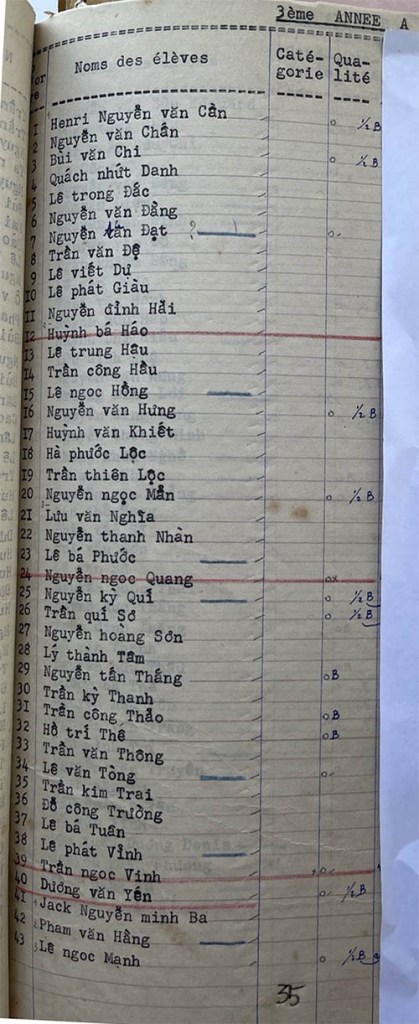 3ème ANNEE A
Noms des élèves Caté- Qua-
re gorie lité
1 Henri Nguyễn văn Cần o ½ B
2 Nguyễn văn Chấn
3 Bùi văn Chi o ½ B
4 Quách nhứt Danh
5 Lê trong Đắc
6 Nguyễn văn Đằng
7 Nguyễn tấn Đạt ? o
8 Trần văn Đệ
9 Lê viết Dự
I0 Lê phát Giàu
II Nguyễn đình Hải
I2 Huỳnh bá Háo
I3 Lê trung Hậu
I4 Trần công Hầu
I5 Lê ngoc Hồng
I6 Nguyễn văn Hưng o ½ B
I7 Huỳnh văn Khiết
I8 Hà phước Lộc
I9 Trần thiên Lộc
20 Nguyễn ngọc Mẫn o ½ B
2I Lưu văn Nghĩa
22 Nguyễn thanh Nhàn
23 Lê bá Phước
24 Nguyễn ngoc Quang ox
25 Nguyễn kỳ Quí o ½ B
26 Trần quí Sơ o ½ B
27 Nguyễn hoàng Sơn
28 Lý thành Tâm
29 Nguyễn tấn Thắng o B
30 Trần kỳ Thanh
3I Trần công Thảo o B
32 Hồ trí Thế o B
33 Trần văn Thông
34 Lê văn Tòng o
35 Trần kim Trai
36 Đỗ công Trường
37 Lê bá Tuân
38 Lê phát Vĩnh
39 Trần ngoc Vinh o
40 Dương văn Yên o ½ B
4I Jack Nguyễn minh Ba
42 Pham văn Hằng
43 Lê ngoc Mạnh o ½ B
35